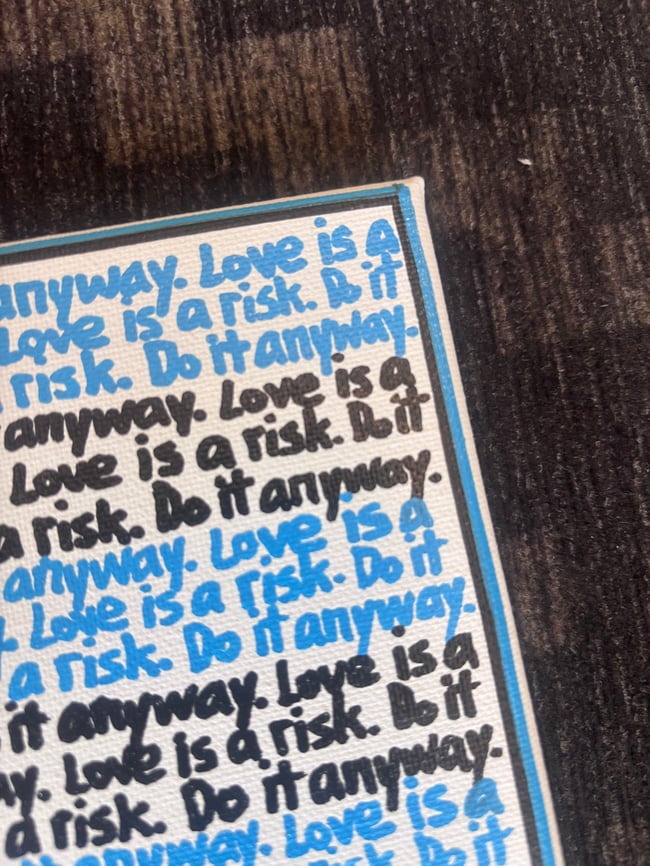 anyway. Love is a
Love is a risk. Do it
risk. Do it anyway.
anyway. Love is a
Love is a risk. Do it
a risk. Do it anyway.
anyway. Love is a
Love is a risk. Do it
a risk. Do it anyway.
it anyway. Love is a
ay. Love is a risk. Do it
a risk. Do it anyway.
anyway. Love is a
risk Do it